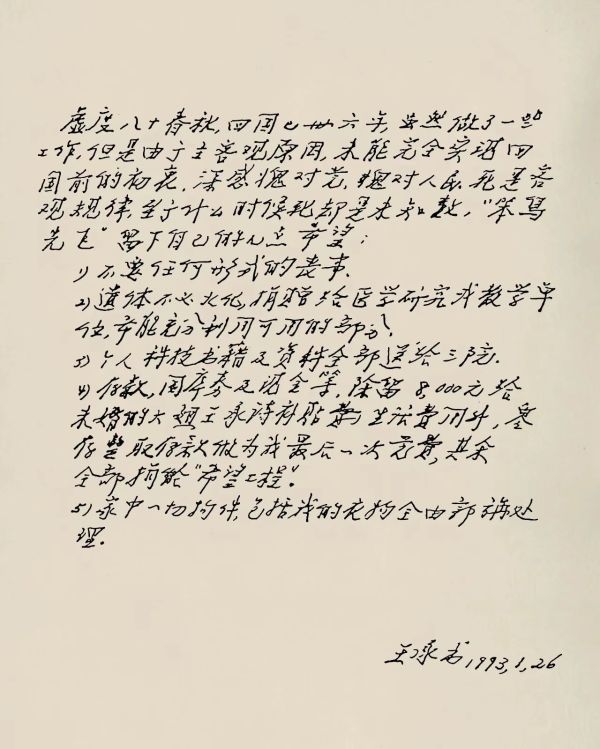 虚度八十春秋,回国已卅六年,虽然做了一些
工作,但是由于主客观原因,未能完全实现回
国前的初衷,深感愧对党,愧对人民。死是客
观规律,至于什么时侯死却是未知数,“笨鸟
先飞”留下自己的几点希望:
1)不要任何形式的丧事.
2)遗体不必火化,捐赠给医学研究或教学单
位,希能充分利用可用的部分.
3)个人科技书籍及资料全部送给三院.
4)存款,国库券及现金等,除留8,000元给
未婚的大姐王承诗补贴生活费用外,
零存整取存款做为我最后一次党费,其余
全部捐给“希望工程”.
5)家中一切物件,包括我的衣物全由郭、处
理.
王承书 1993,1,26